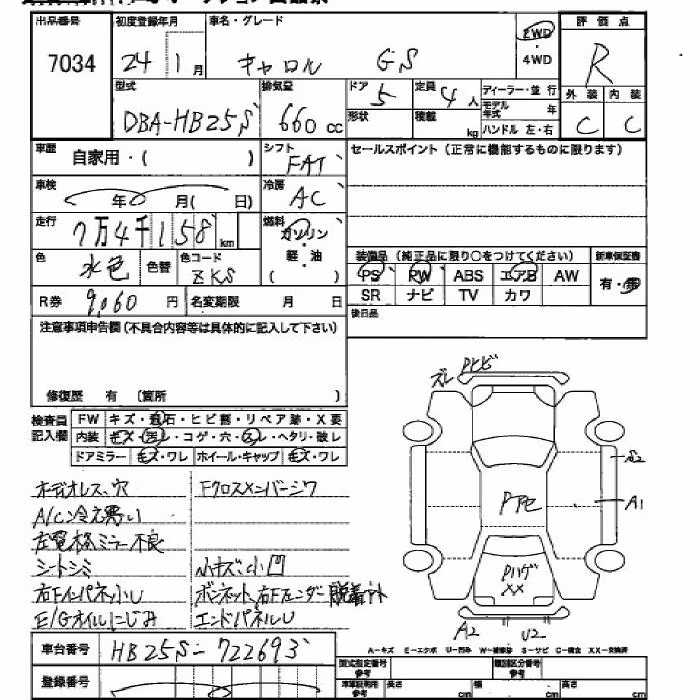 出品番号 初度登録年月 車名・グレード 評価点
7034 24 1月 キャロル GS 2WD・4WD R
型式 排気量 ドア 5 定員 4人 ディーラー・並行 外装 内装
DBA-HB25S 660cc 形状 積載 kg モデル年式 年 C C
ハンドル 左・右
車歴 自家用・( ) シフト FAT セールスポイント(正常に機能するものに限ります)
車検 年 月( 日) 冷房 AC
走行 7万4千158km 燃料 ガソリン・軽・油 ( )
色 水色 色替 色コード ZKS 装備品(純正品に限り○をつけてください) 新車保証書
PS PW ABS エアB AW 有・無
R券 9,060円 名変期限 月 日 SR ナビ TV カワ
注意事項申告欄(不具合内容等は具体的に記入して下さい) 後日品
修復歴 有 〔箇所 〕
検査員記入欄 FW キズ・飛石・ヒビ割・リペア跡・X要
内装 キズ・汚レ・コゲ・穴・スレ・ヘタリ・破レ
ドアミラー キズ・ワレ ホイール・キャップ キズ・ワレ
オーディオレス、穴 Fクロスメンバーシワ
A/C冷え悪い
左電格ミラー不良
シートシミ 小キズ、小凹
右Fインパネ小U ボンネット、右Fフェンダー脱着跡
E/Gオイルにじみ エンドパネルU
ズレ Pヒビ
S2
A1
Pアセ
Pハゲ
XX
A2 U2
A-キズ E-エクボ U-凹み W-補修跡 S-サビ C-腐食 XX-交換済
車台番号 HB25S-722693 型式指定番号 参考 類別区分番号 参考
登録番号 車庫証明用 参考 長さ cm 幅 cm 高さ cm